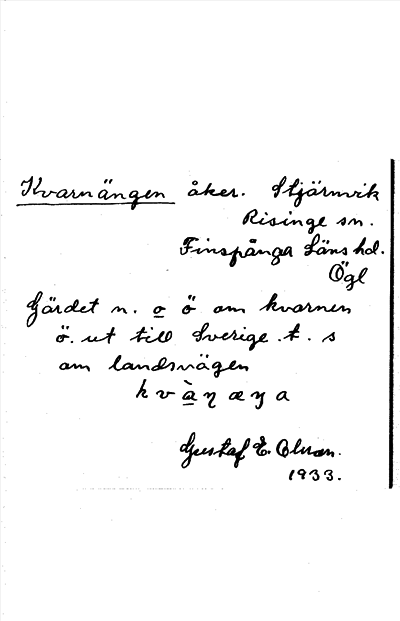 Kvarnängen åker. Stjärnvik
Risinge sn.
Finspånga Läns hd.
Ögl
Gärdet n. o ö om kvarnen
ö. ut till Sverige t. s
om landsvägen
k v à ŋ æ ŋ a
Gustaf E. Olsson.
1933.